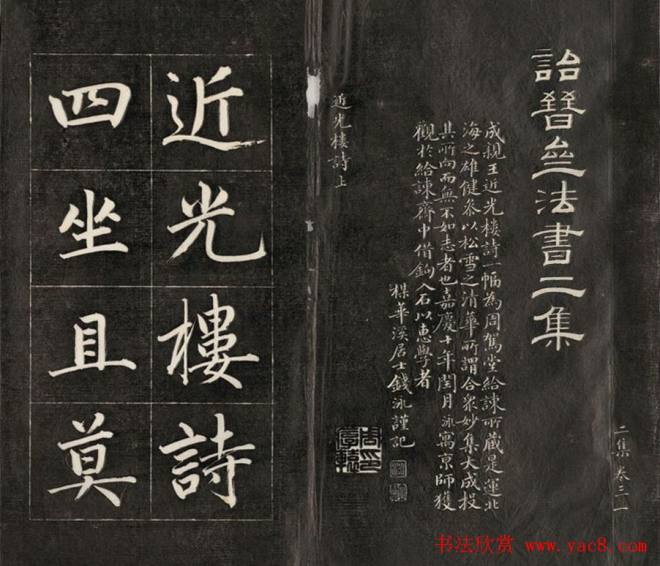 詒晉齋法書二集
二集 卷三 一
成親王近光樓詩一幅為周駕堂給諫所藏是運北
海之雄健參以松雪之清華所謂合眾妙集大成投
其所向而無不如志者也嘉慶十年閏月泳寓京師獲
觀於給諫齋中借鉤入石以惠學者
楳華溪居士錢泳謹記
近光樓詩上
近光樓詩
四坐且莫
书法欣赏 www.yac8.com